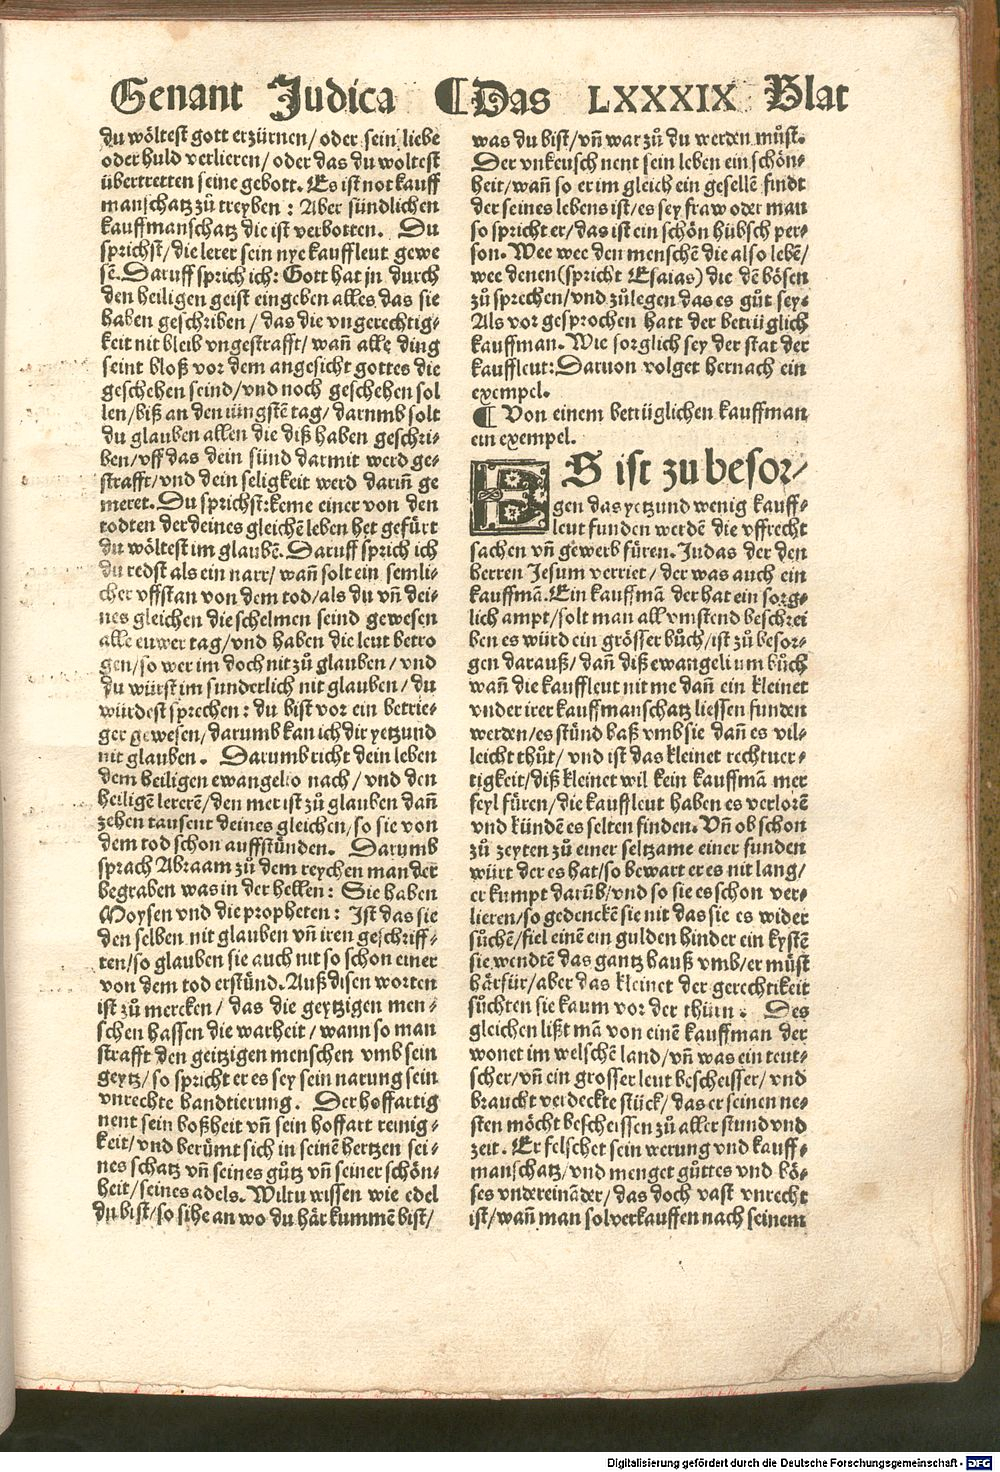 Genant Judica ¶ Das LXXXIX Blat
du wöltest gott erzürnen/ oder sein liebe
oder huld verlieren/ oder das du woltest
übertretten seine gebott. Es ist not kauff
manschatz zů treyben : Aber sündlichen
kauffmanschatz die ist verbotten. Du
sprichst/ die lerer sein nye kauffleut gewe
sẽ. Daruff sprich ich: Gott hat jn durch
den heiligen geist eingeben alles das sie
haben geschriben / das die vngerechtig⸗
keit nit bleib vngestrafft/ wañ alle ding
seint bloß vor dem angesicht gottes die
geschehen seind/ vnd noch geschehen sol
len/ biß an den iüngstẽ tag/ darumb solt
du glauben allen die diß haben geschri⸗
ben/ vff das dein sünd darmit werd ge⸗
strafft/ vnd dein seligkeit werd dariñ ge
meret. Du sprichst: keme einer von den
todten der deines gleichẽ leben het gefürt
du wöltest im glaubẽ. Daruff sprich ich
du redst als ein narr/ wañ solt ein semli⸗
cher vffstan von dem tod/ als du vñ dei⸗
nes gleichen die schelmen seind gewesen
alle euwer tag/ vnd haben die leut betro
gen/ so wer im doch nit zů glauben / vnd
du würst im sunderlich nit glauben / du
würdest sprechen : du bist vor ein betrie⸗
ger gewesen/ darumb kan ich dir yetzund
nit glauben. Darumb richt dein leben
dem heiligen ewangelio nach/ vnd den
heiligẽ lererẽ/ den mer ist zů glauben dañ
zehen tausent deines gleichen/ so sie von
dem tod schon auffstünden. Darumb
sprach Abraam zů dem reychen man der
begraben was in der hellen : Sie haben
Moysen vnd die propheten : Ist das sie
den selben nit glauben vñ iren geschriff⸗
ten/ so glauben sie auch nit so schon einer
von dem tod erstünd. Auß disen worten
ist zů mercken / das die geytzigen men⸗
schen hassen die warheit / wann so man
strafft den geitzigen menschen vmb sein
geytz/ so spricht er es sey sein narung sein
vnrechte handtierung. Der hoffartig
nent sein boßheit vñ sein hoffart reinig⸗
keit/ vnd berümt sich in seinẽ hertzen sei⸗
nes schatz vñ seines gůtz vñ seiner schön⸗
heit/ seines adels. Wiltu wissen wie edel
du bist/ so sihe an wo du här kummẽ bist/
was du bist/ vñ war zů du werden můst.
Der vnkeusch nent sein leben ein schön⸗
heit/ wañ so er im gleich ein gesellẽ findt
der seines lebens ist/ es sey fraw oder man
so spricht er/ das ist ein schön hübsch per⸗
son. Wee wee den menschẽ die also lebẽ/
wee denen (spricht Esaias) die dẽ bösen
zů sprechen/ vnd zůlegen das es gůt sey.
Als vor gesprochen hatt der betrüglich
kauffman. Wie sorglich sey der stat der
kauffleut: Daruon volget hernach ein
exempel.
¶ Von einem betrüglichen kauffman
ein exempel.
ES ist zu besor⸗
gen das yetzund wenig kauff⸗
leut funden werdẽ die vffrecht
sachen vñ gewerb füren. Judas der den
herren Jesum verriet / der was auch ein
kauffmã. Ein kauffmã der hat ein sorg⸗
lich ampt/ solt man all vmstend beschrei
ben es würd ein grösser bůch/ ist zů besor⸗
gen darauß/ dañ diß ewangelium bůch
wañ die kauffleut nit me dañ ein kleinet
vnder irer kauffmanschatz liessen funden
werden/ es stünd baß vmb sie dañ es vil⸗
leicht thůt/ vnd ist das kleinet rechtuer⸗
tigkeit/ diß kleinet wil kein kauffmã mer
feyl füren/ die kauffleut haben es verlorẽ
vnd kündẽ es selten finden. Vñ ob schon
zů zeyten zů einer seltzame einer funden
würt der es hat/ so bewart er es nit lang/
er kumpt darüb/ vnd so sie es schon ver⸗
lieren/ so gedenckẽ sie nit das sie es wider
sůchẽ/ fiel einẽ ein gulden hinder ein kystẽ
sie wendtẽ das gantz hauß vmb/ er můst
härfür/ aber das kleinet der gerechtikeit
sůchten sie kaum vor der thürn. Des
gleichen lißt mã von einẽ kauffman der
wonet im welschẽ land/ vñ was ein teut⸗
scher/ vñ ein grosser leut bescheisser/ vnd
braucht verdeckte stück/ das er seinen ne⸗
sten möcht bescheissen zů aller stund vnd
zeit. Er felschet sein werung vnd kauff⸗
manschatz/ vnd menget gůttes vnd bö⸗
ses vndereinãder/ das doch vast vnrecht
ist/ wañ man sol verkauffen nach seinem
Digitalisierung gefördert durch die Deutsche Forschungsgemeinschaft - DFG